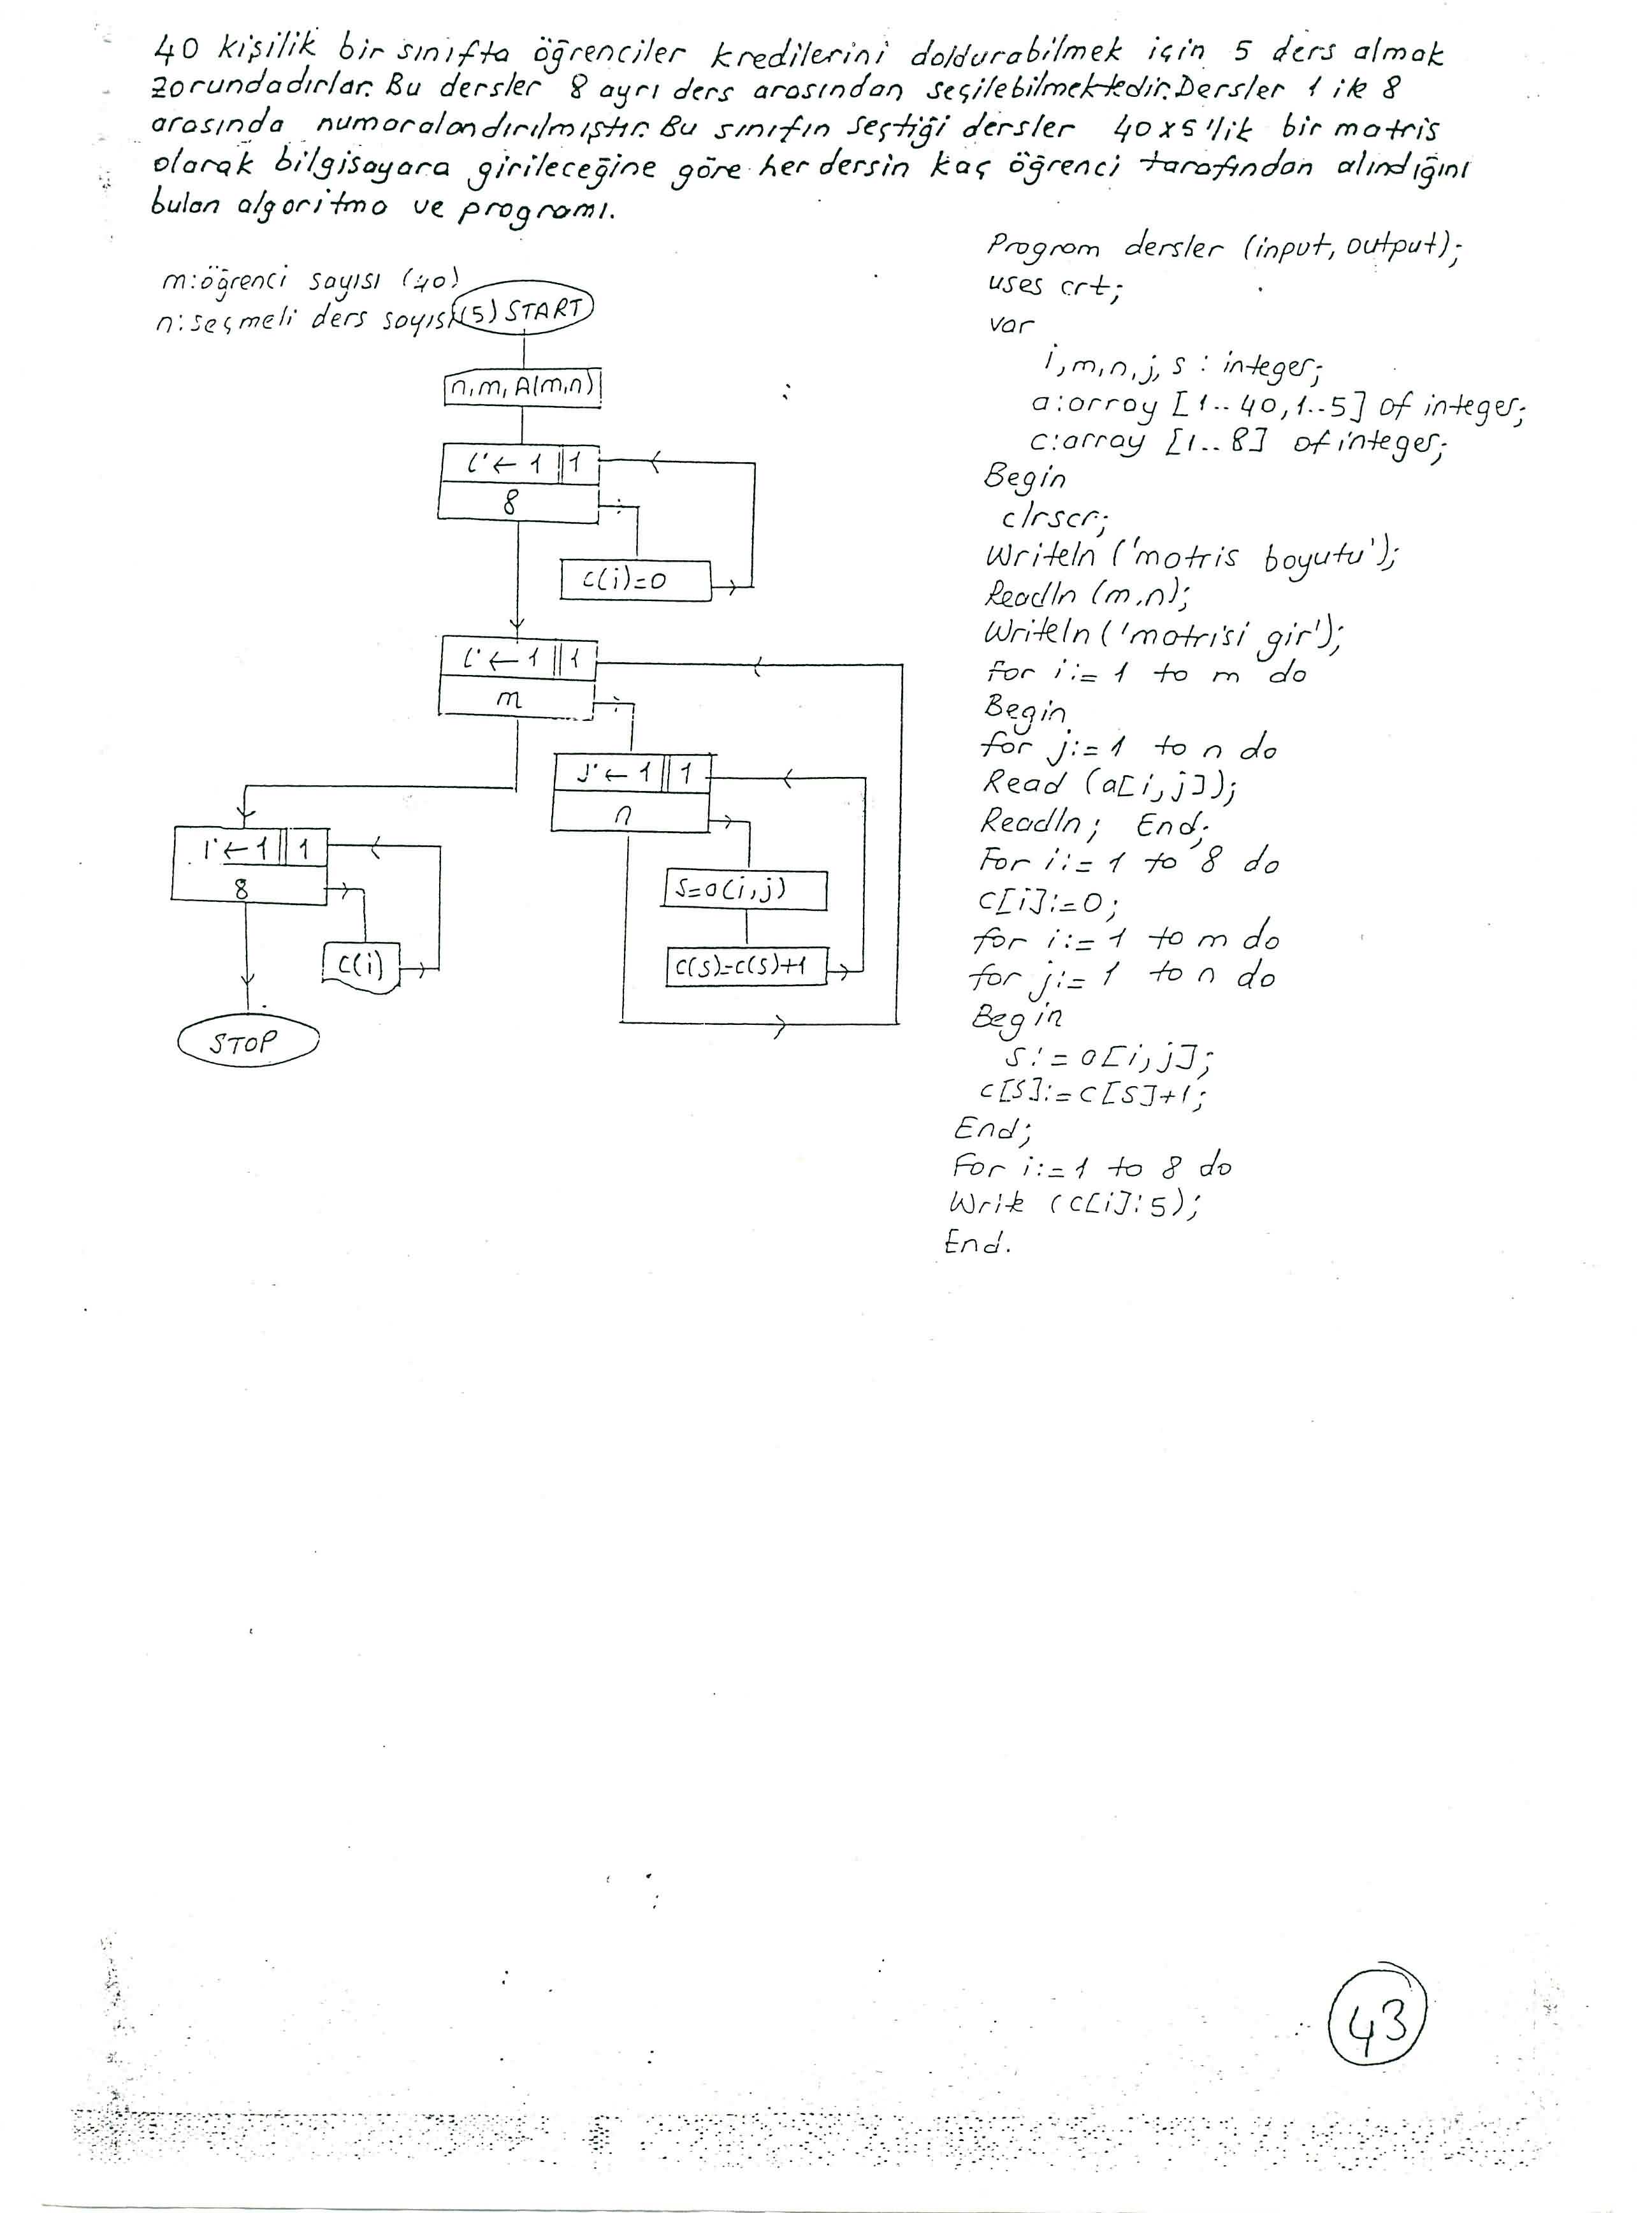 40 kişilik bir sınıfta öğrenciler kredilerini doldurabilmek için 5 ders almak
zorundadırlar. Bu dersler 8 ayrı ders arasından seçilebilmektedir. Dersler 1 ile 8
arasında numaralandırılmıştır. Bu sınıfın seçtiği dersler 40x5'lik bir matris
olarak bilgisayara girileceğine göre her dersin kaç öğrenci tarafından alındığını
bulan algoritma ve programı.
m:öğrenci sayısı (40)
n:seçmeli ders sayısı(5)
START
n,m,A(m,n)
i←1 1
8
c(i)=0
i←1 1
m
j←1 1
n
s=a(i,j)
c(s)=c(s)+1
i←1 1
8
c(i)
STOP
Program dersler (input, output);
uses crt;
var
i,m,n,j,s : integer;
a:array [1..40,1..5] of integer;
c:array [1..8] of integer;
Begin
clrscr;
Writeln ('matris boyutu');
Readln (m,n);
Writeln ('matrisi gir');
for i:= 1 to m do
Begin
for j:= 1 to n do
Read (a[i,j]);
Readln; End;
For i:= 1 to 8 do
c[i]:=0;
for i:= 1 to m do
for j:= 1 to n do
Begin
s:= a[i,j];
c[s]:=c[s]+1;
End;
For i:=1 to 8 do
Write (c[i]:5);
End.
43